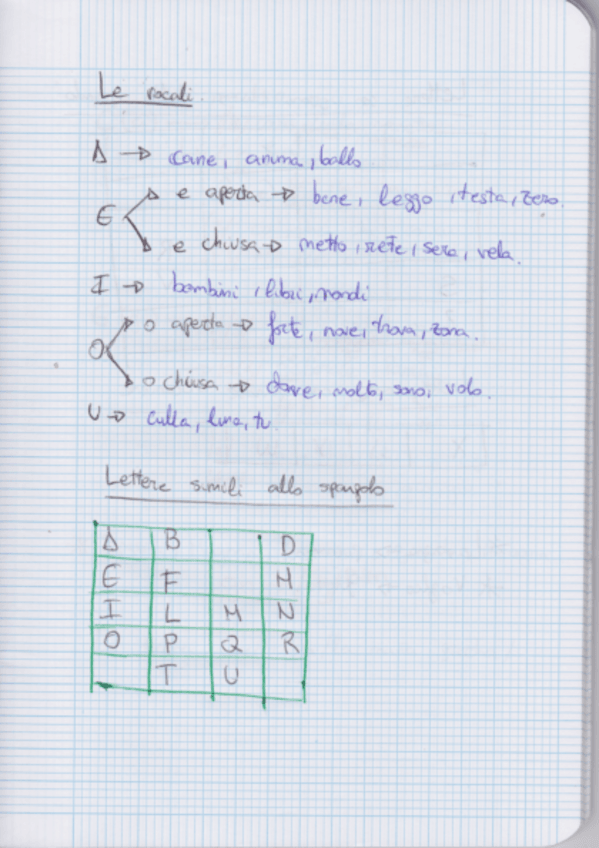 Le vocali
A → cane, anima, ballo
E
e aperta → bene, leggo, testa, zero.
e chiusa → metto, rete, sera, vela.
I → bambini, libri, mondi
O
o aperta → forte, nove, trova, zona.
o chiusa → dove, molto, sono, volo.
U → culla, luna, tu
Lettere simili allo spagnolo
A B D
E F H
I L M N
O P Q R
T U